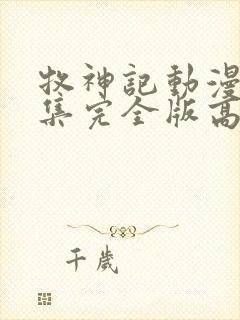 牧神記動漫
集完全版高
千歲